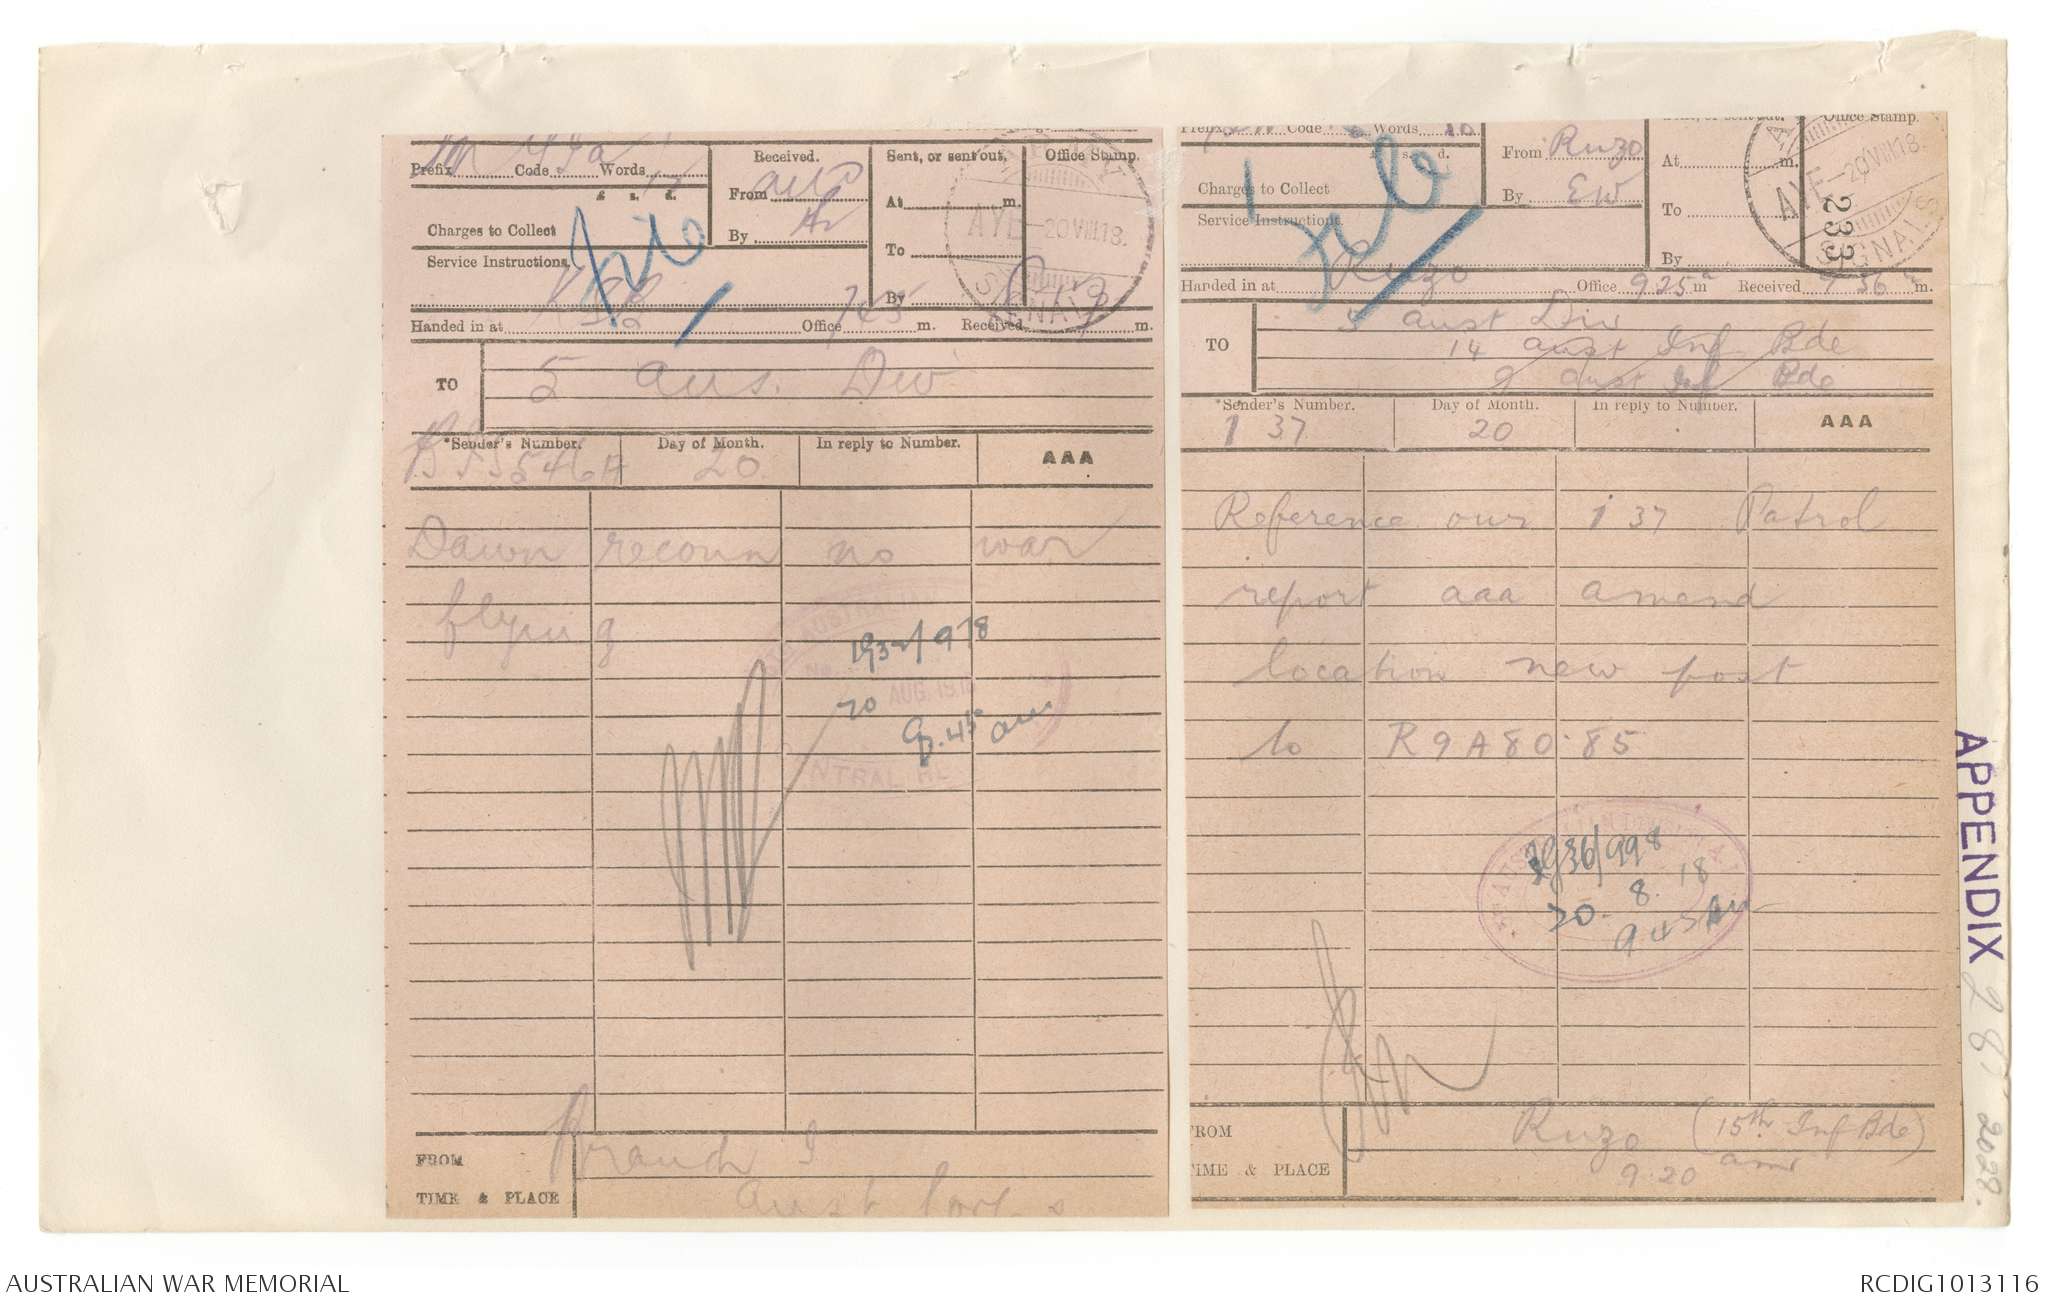 Prefix Code Words
£ s. d.
Charges to Collect
Service Instructions.
Received.
From
By
Sent, or sent out,
At m.
To
By
Office Stamp.
AYE - 20 VIII 18.
SIGNALS
Handed in at Office m. Received m.
TO 5 Aus. Div
*Sender's Number. Day of Month. In reply to Number. AAA
20
Dawn reconn no war
flying
AUSTRALIAN
AUG. 191
9.45 am
FROM Branch I
TIME & PLACE Aust Corps
Prefix Code Words
s. d.
Charges to Collect
Service Instructions.
Ruzo
From Ruzo
By EW
At m.
To
By
Office Stamp.
AYE - 20 VIII 18.
233
SIGNALS
Handed in at Office 925a m Received 9 36 m.
TO 5 Aust Div
14 Aust Inf Bde
9 Aust Inf Bde
*Sender's Number. Day of Month. In reply to Number. AAA
I 37 20
Reference our I 37 Patrol
report aaa amend
location new post
to R9A80.85
20. 8. 18
9.45 AM
FROM Ruzo (15th Inf Bde)
TIME & PLACE 9.20 am
APPENDIX
AUSTRALIAN WAR MEMORIAL
RCDIG1013116